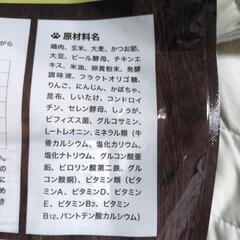 原材料名
鶏肉、玄米、大麦、かつお節、
大豆、ビール酵母、チキンエ
キス、米油、卵黄粉末、発酵
調味液、フラクトオリゴ糖、
りんご、にんじん、かぼちゃ、
昆布、しいたけ、コンドロイ
チン、セレン酵母、しょうが、
ビフィズス菌、グルコサミン、
L-トレオニン、ミネラル類（牛
骨カルシウム、塩化カリウム、
塩化ナトリウム、グルコン酸亜
鉛、ピロリン酸第二鉄、グルコ
ン酸銅）、ビタミン類（ビタミ
ンA、ビタミンD、ビタミン
E、ビタミンB2、ビタミン
B12、パントテン酸カルシウム）